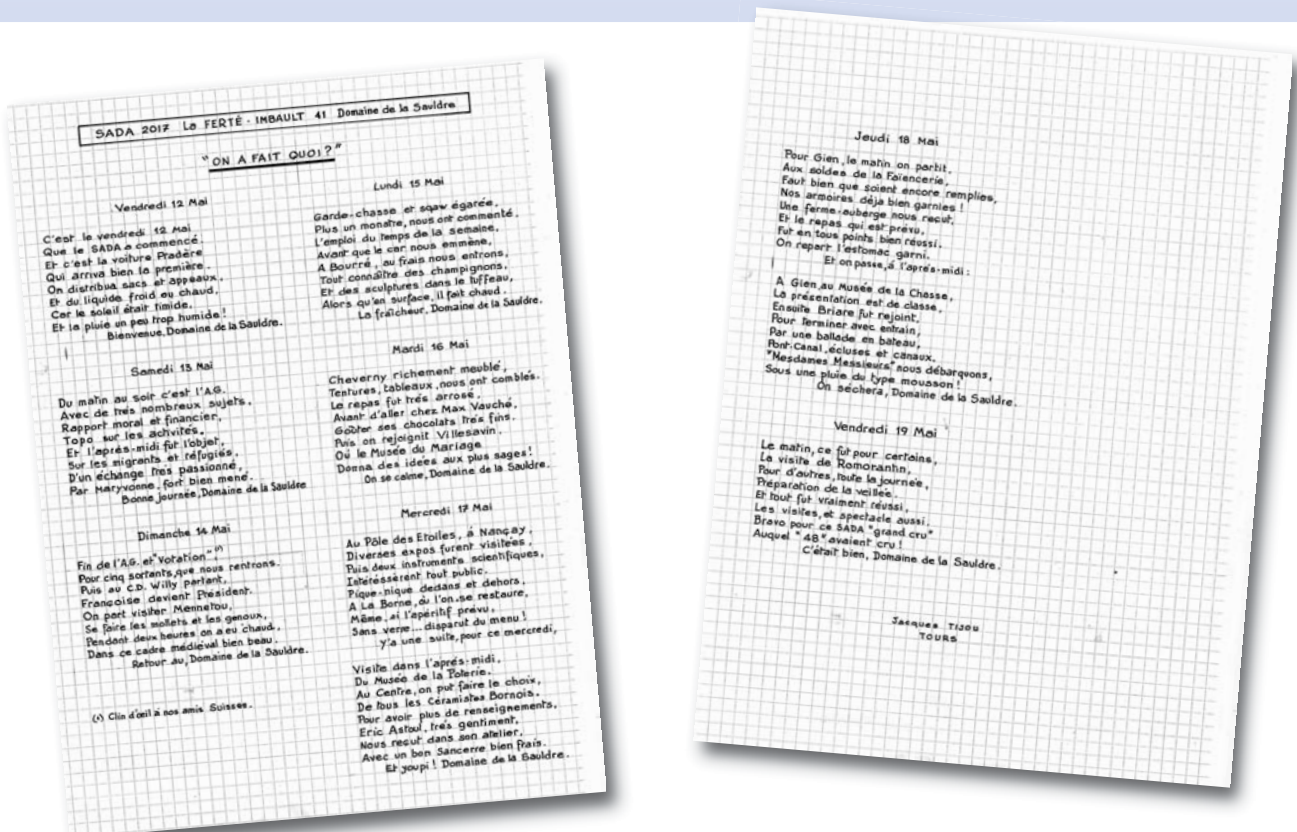 SADA 2017 La FERTÉ-IMBAULT 41 Domaine de la Sauldre
"ON A FAIT QUOI?"
Vendredi 12 Mai
C'est le vendredi 12 Mai
Que le SADA a commencé.
Et c'est la voiture Pradère
Qui arriva bien la première.
On distribua sacs et appeaux,
Et du liquide froid ou chaud,
Car le soleil était timide,
Et la pluie un peu trop humide!
Bienvenue, Domaine de la Sauldre.
Samedi 13 Mai
Du matin au soir c'est l'A.G.
Avec de très nombreux sujets,
Rapport moral et financier,
Topo sur les activités.
Et l'après-midi fut l'objet,
Sur les migrants et réfugiés,
D'un échange très passionné,
Par Maryvonne, fort bien mené.
Bonne journée, Domaine de la Sauldre
Dimanche 14 Mai
Fin de l'A.G. et "Votation", (1)
Pour cinq sortants, que nous rentrons.
Puis au C.D. Willy partant,
Françoise devient Président.
On part visiter Mennetou,
Se faire les mollets et les genoux,
Pendant deux heures on a eu chaud,
Dans ce cadre médiéval bien beau.
Retour au, Domaine de la Sauldre.
(1) Clin d'œil à nos amis Suisses.
Lundi 15 Mai
Garde-chasse et sqaw égarée,
Plus un monstre, nous ont commenté,
L'emploi du temps de la semaine,
Avant que le car nous emmène,
A Bourré, au frais nous entrons,
Tout connaître des champignons,
Et des sculptures dans le tuffeau,
Alors qu'en surface, il fait chaud.
La fraîcheur, Domaine de la Sauldre.
Mardi 16 Mai
Cheverny richement meublé,
Tentures, tableaux, nous ont comblés.
Le repas fut très arrosé,
Avant d'aller chez Max Vauché,
Goûter ses chocolats très fins.
Puis on rejoignit Villesavin.
Où le Musée du Mariage
Donna des idées aux plus sages!
On se calme, Domaine de la Sauldre.
Mercredi 17 Mai
Au Pôle des Etoiles, à Nançay,
Diverses expos furent visitées,
Puis deux instruments scientifiques,
Intéressèrent tout public.
Pique-nique dedans et dehors,
A La Borne, où l'on se restaure,
Même, si l'apéritif prévu,
Sans verre... disparut du menu!
Y'a une suite, pour ce mercredi,
Visite dans l'après-midi,
Du Musée de la Poterie.
Au Centre, on put faire le choix,
De tous les Céramistes Bornois.
Pour avoir plus de renseignements,
Eric Astoul, très gentiment,
Nous reçut dans son atelier,
Avec un bon Sancerre bien frais.
Et youpi! Domaine de la Sauldre.
Jeudi 18 Mai
Pour Gien, le matin on partit,
Aux soldes de la Faïencerie,
Faut bien que soient encore remplies,
Nos armoires déja bien garnies!
Une ferme-auberge nous reçut,
Et le repas qui est prévu,
Fut en tous points bien réussi.
On repart l'estomac garni.
Et on passe, à l'après-midi:
A Gien, au Musée de la Chasse,
La présentation est de classe,
Ensuite Briare fut rejoint,
Pour terminer avec entrain,
Par une ballade en bateau,
Pont-Canal, écluses et canaux.
"Mesdames Messieurs" nous débarquons,
Sous une pluie du type mousson!
On séchera, Domaine de la Sauldre.
Vendredi 19 Mai
Le matin, ce fut pour certains,
La visite de Romorantin,
Pour d'autres, toute la journée,
Préparation de la veillée.
Et tout fut vraiment réussi,
Les visites, et spectacle aussi,
Bravo pour ce SADA "grand cru"
Auquel "48" avaient cru!
C'était bien, Domaine de la Sauldre.
Jacques TIJOU
TOURS